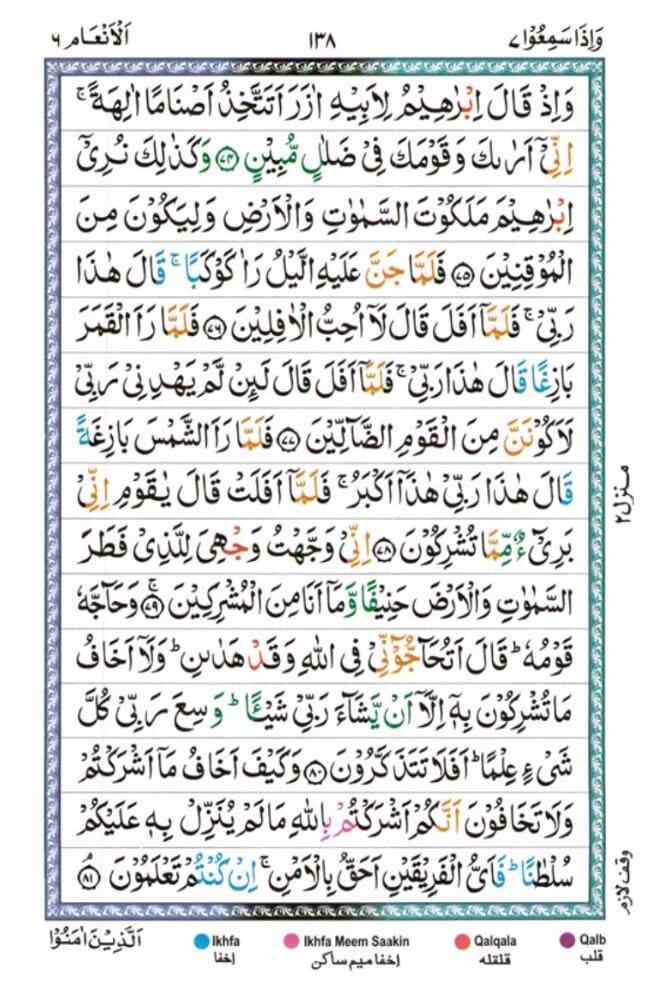 وَاِذَا سَمِعُوْا ٧
١٣٨
اَلْاَنْعَام ٦
وَاِذْ قَالَ اِبْرٰهِيْمُ لِاَبِيْهِ اٰزَرَ اَتَتَّخِذُ اَصْنَامًا اٰلِهَةً ۚ
اِنِّيْٓ اَرٰىكَ وَقَوْمَكَ فِيْ ضَلٰلٍ مُّبِيْنٍ ﴿٧٤﴾ وَكَذٰلِكَ نُرِيْٓ
اِبْرٰهِيْمَ مَلَكُوْتَ السَّمٰوٰتِ وَالْاَرْضِ وَلِيَكُوْنَ مِنَ
الْمُوْقِنِيْنَ ﴿٧٥﴾ فَلَمَّا جَنَّ عَلَيْهِ الَّيْلُ رَاٰ كَوْكَبًا ۚ قَالَ هٰذَا
رَبِّيْ ۚ فَلَمَّآ اَفَلَ قَالَ لَآ اُحِبُّ الْاٰفِلِيْنَ ﴿٧٦﴾ فَلَمَّا رَاَ الْقَمَرَ
بَازِغًا قَالَ هٰذَا رَبِّيْ ۚ فَلَمَّآ اَفَلَ قَالَ لَىِٕنْ لَّمْ يَهْدِنِيْ رَبِّيْ
لَاَكُوْنَنَّ مِنَ الْقَوْمِ الضَّآلِّيْنَ ﴿٧٧﴾ فَلَمَّا رَاَ الشَّمْسَ بَازِغَةً
قَالَ هٰذَا رَبِّيْ هٰذَآ اَكْبَرُ ۚ فَلَمَّآ اَفَلَتْ قَالَ يٰقَوْمِ اِنِّيْ
بَرِيْٓءٌ مِّمَّا تُشْرِكُوْنَ ﴿٧٨﴾ اِنِّيْ وَجَّهْتُ وَجْهِيَ لِلَّذِيْ فَطَرَ
السَّمٰوٰتِ وَالْاَرْضَ حَنِيْفًا وَّمَآ اَنَا مِنَ الْمُشْرِكِيْنَ ۚ﴿٧٩﴾ وَحَآجَّهٗ
قَوْمُهٗ ؕ قَالَ اَتُحَآجُّوْٓنِّيْ فِي اللّٰهِ وَقَدْ هَدٰىنِ ؕ وَلَآ اَخَافُ
مَا تُشْرِكُوْنَ بِهٖٓ اِلَّآ اَنْ يَّشَآءَ رَبِّيْ شَيْـًٔا ؕ وَسِعَ رَبِّيْ كُلَّ
شَيْءٍ عِلْمًا ؕ اَفَلَا تَتَذَكَّرُوْنَ ﴿٨٠﴾ وَكَيْفَ اَخَافُ مَآ اَشْرَكْتُمْ
وَلَا تَخَافُوْنَ اَنَّكُمْ اَشْرَكْتُمْ بِاللّٰهِ مَا لَمْ يُنَزِّلْ بِهٖ عَلَيْكُمْ
سُلْطٰنًا ؕ فَاَيُّ الْفَرِيْقَيْنِ اَحَقُّ بِالْاَمْنِ ۚ اِنْ كُنْتُمْ تَعْلَمُوْنَ ۘ﴿٨١﴾
منزل ٢
وقف لازم
اَلَّذِيْنَ اٰمَنُوْا
Ikhfa
إخفا
Ikhfa Meem Saakin
إخفا ميم ساكن
Qalqala
قلقله
Qalb
قلب